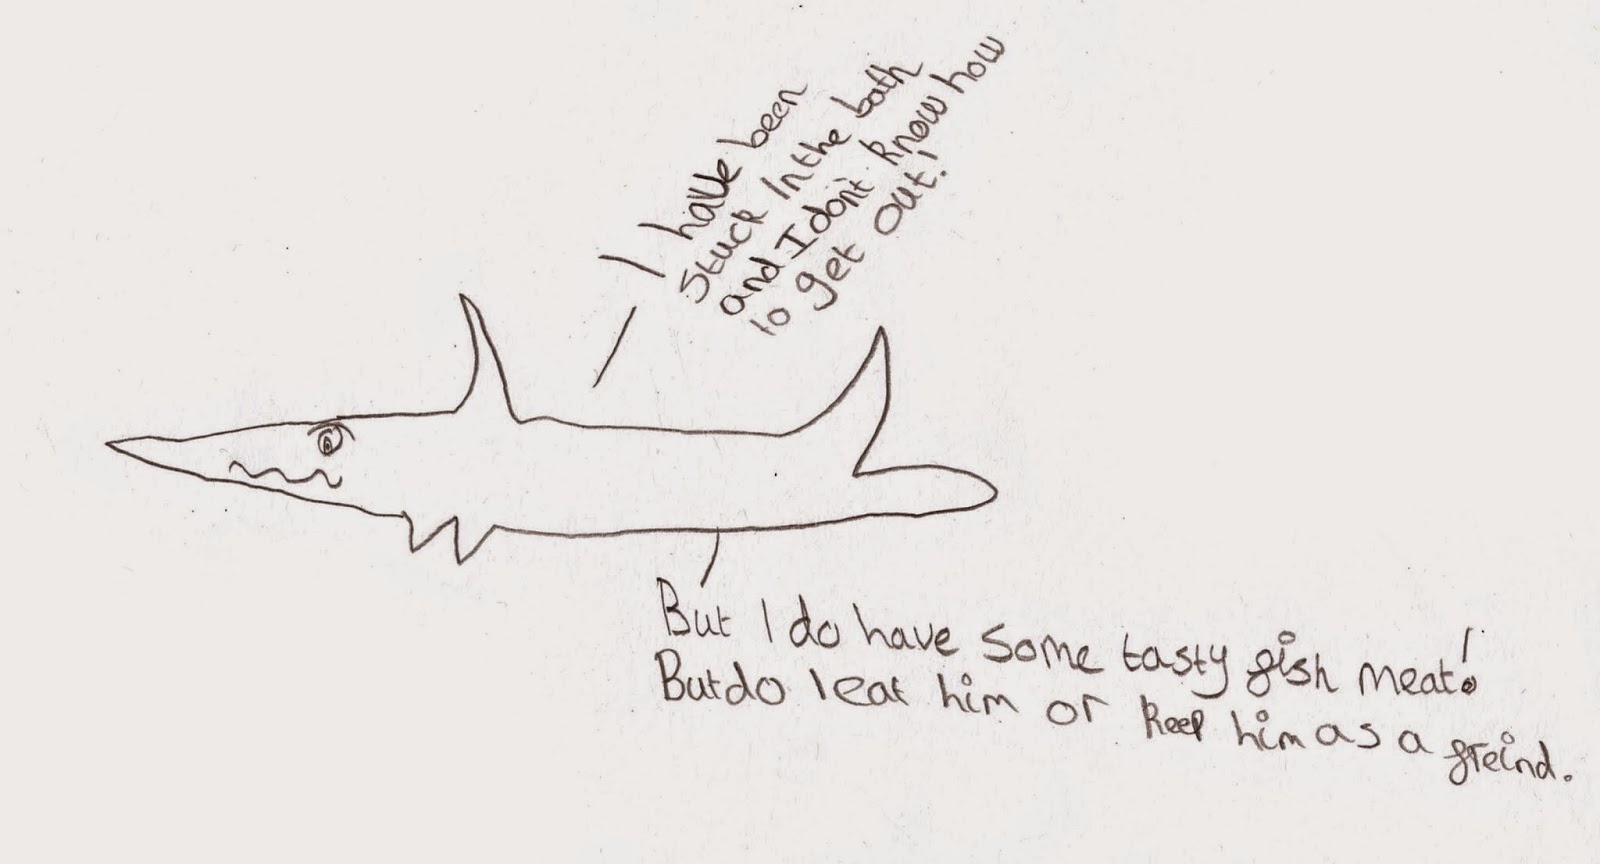 I have been
stuck In the bath
and I don't know how
to get out!
But I do have some tasty fish meat!
But do I eat him or keep him as a freind.